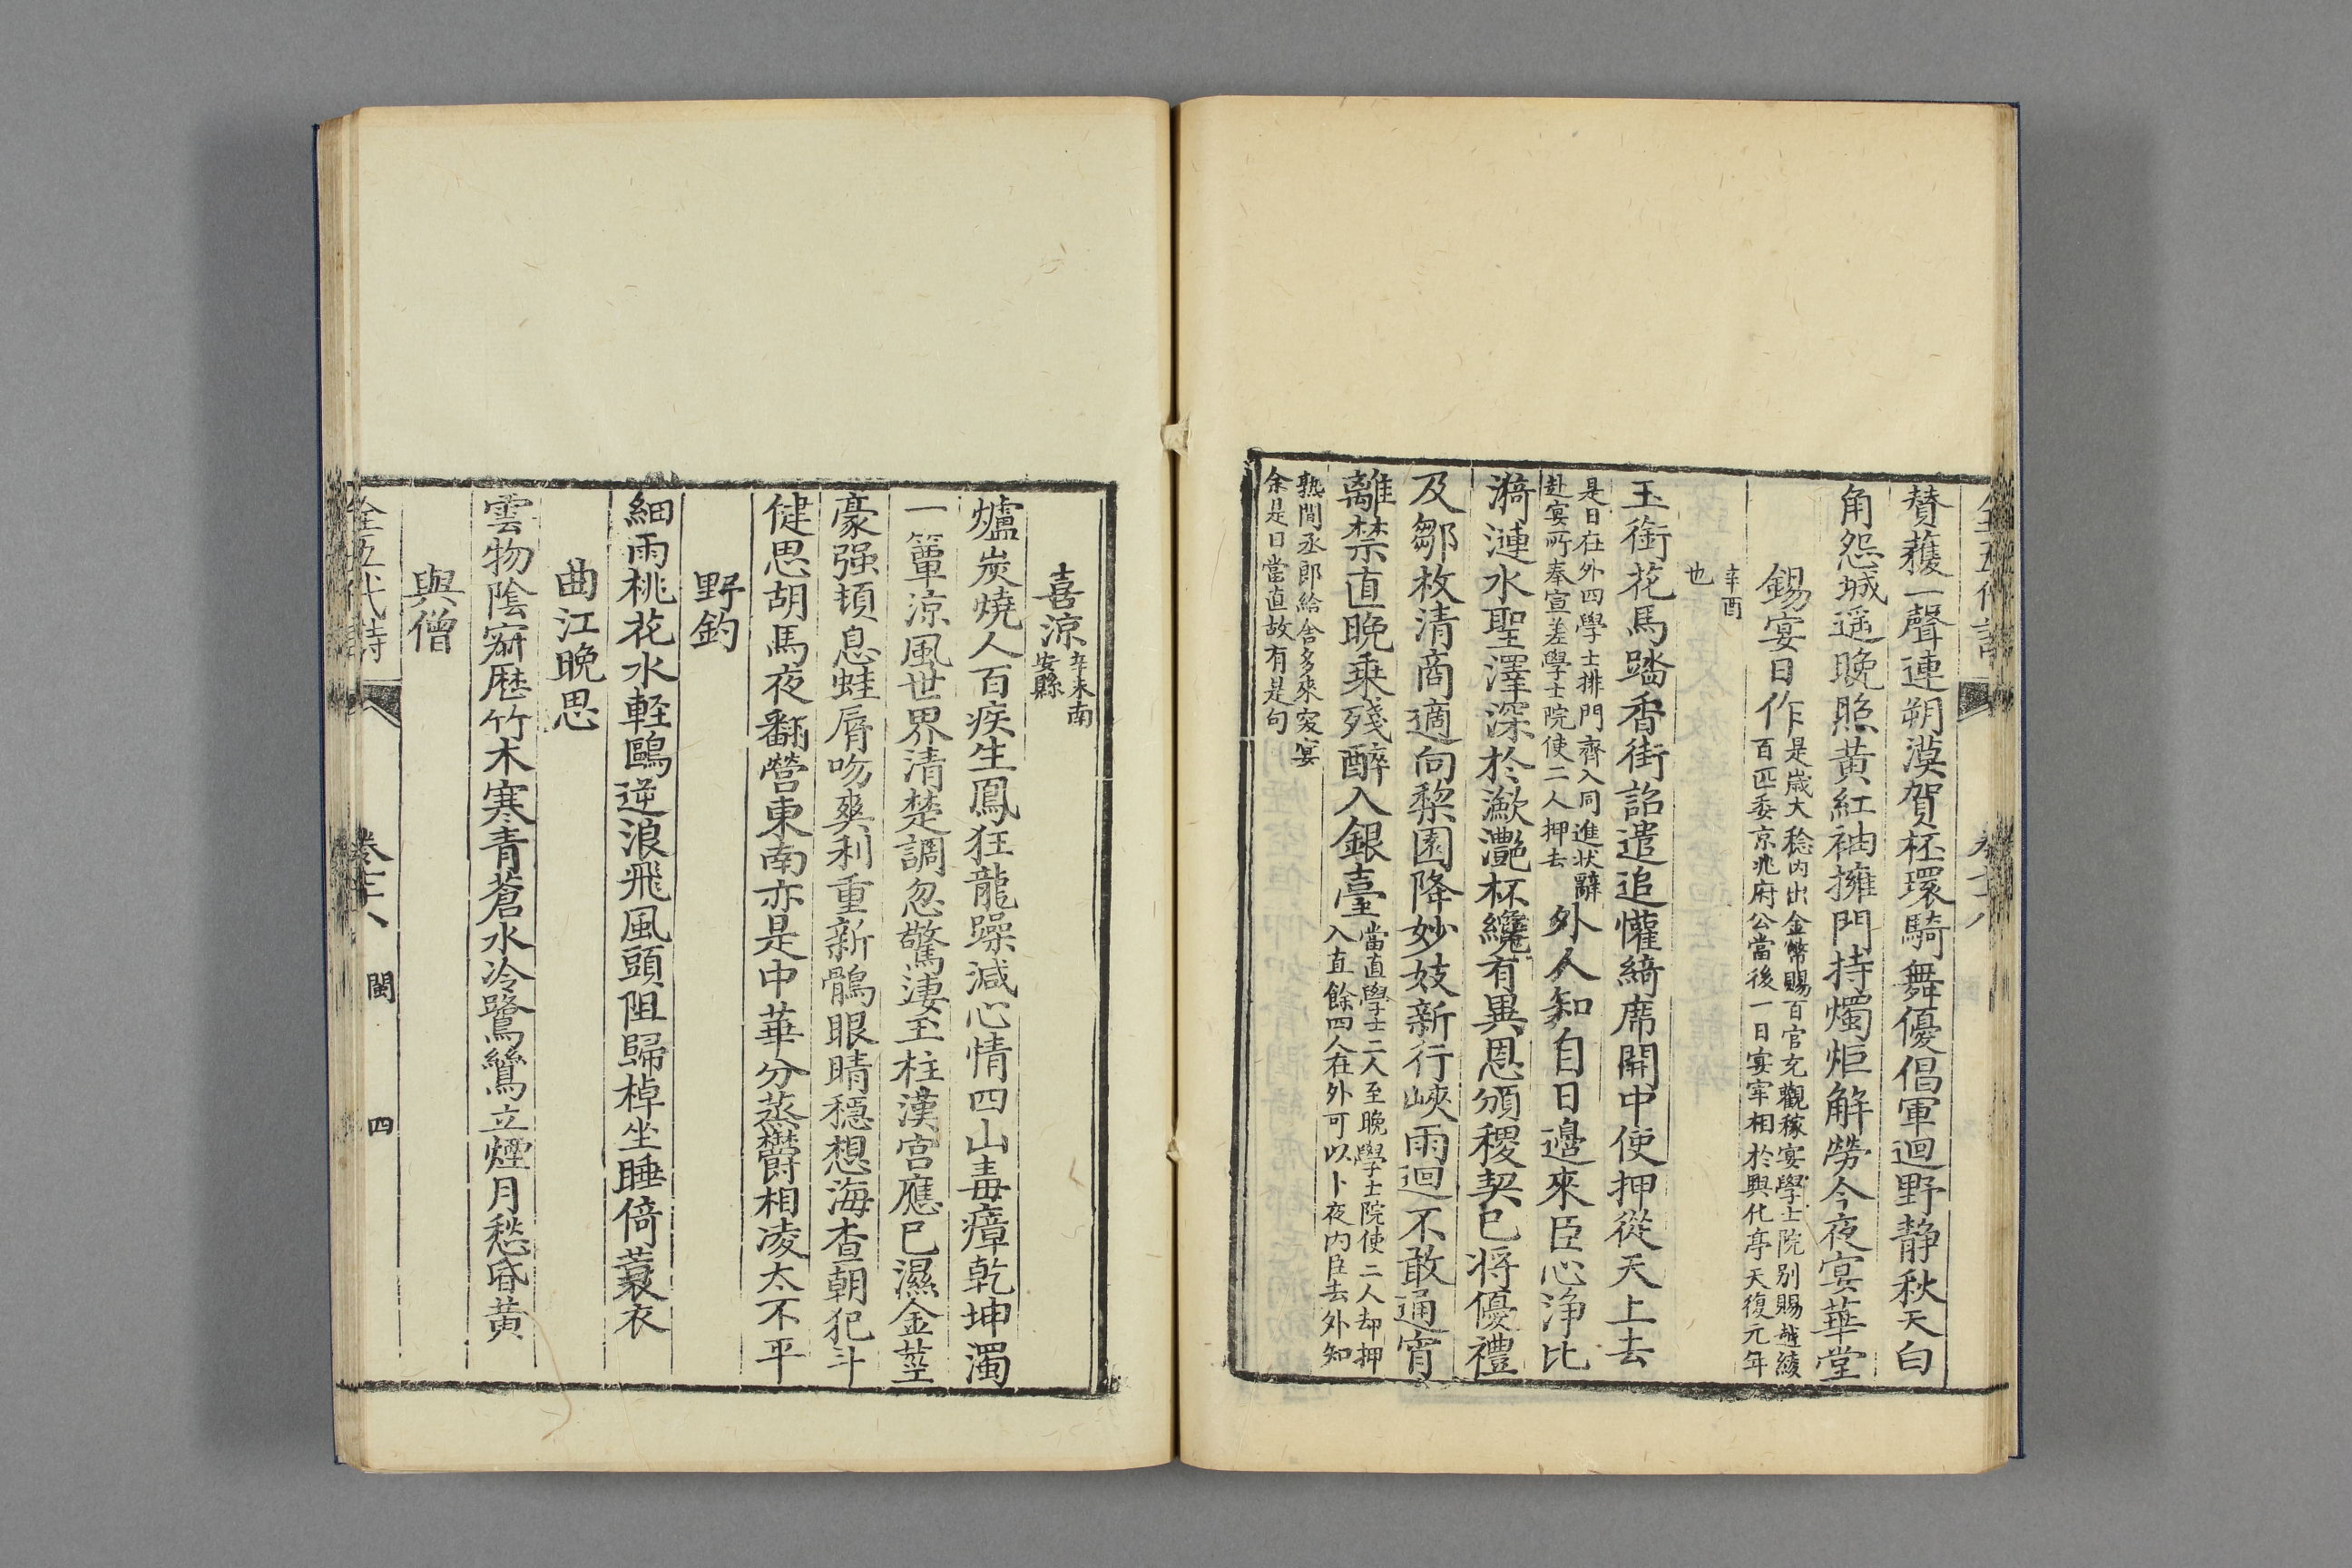 全五代詩 卷七十八
賛蕿一聲連朔漠賀杯環騎舞優倡軍迴野静秋天白
角怨城遥晚照黄紅袖擁門持燭炬解勞今夜宴華堂
錫宴日作
是歲大稔内出金幣賜百官充觀稼宴學士院别賜越綾
百匹委京兆府公當後一日宴宰相於興化亭天復元年
辛酉
也
玉銜花馬踏香街詔遣追懽綺席開中使押從天上去
是日在外四學士排門齊入同進狀辭
赴宴所奉宣差學士院使二人押去
外人知自日邊來臣心浄比
漪漣水聖澤深於瀲灧杯纔有異恩頒稷契已将優禮
及鄒枚清商適向梨園降妙妓新行峽雨迴不敢通宵
離禁直晚乗殘醉入銀臺
當直學士二人至晚學士院使二人却押
入直餘四人在外可以卜夜内臣去外知
熟間丞郎給舍多來突宴
余是日當直故有是句
喜涼
辛未南
安縣
爐炭燒人百疾生鳳狂龍躁減心情四山毒瘴乾坤濁
一簟涼風世界清楚調忽驚淒玉柱漢宫應已濕金莖
豪强頓息蛙脣吻爽利重新鶻眼睛穩想海查朝犯斗
健思胡馬夜翻營東南亦是中華分蒸鬱相凌太不平
野釣
細雨桃花水輕鷗逆浪飛風頭阻歸棹坐睡倚蓑衣
曲江晚思
雲物陰寂歷竹木寒青蒼水冷鷺鷥立煙月愁昏黄
與僧
全五代詩 卷七十八 閩 四